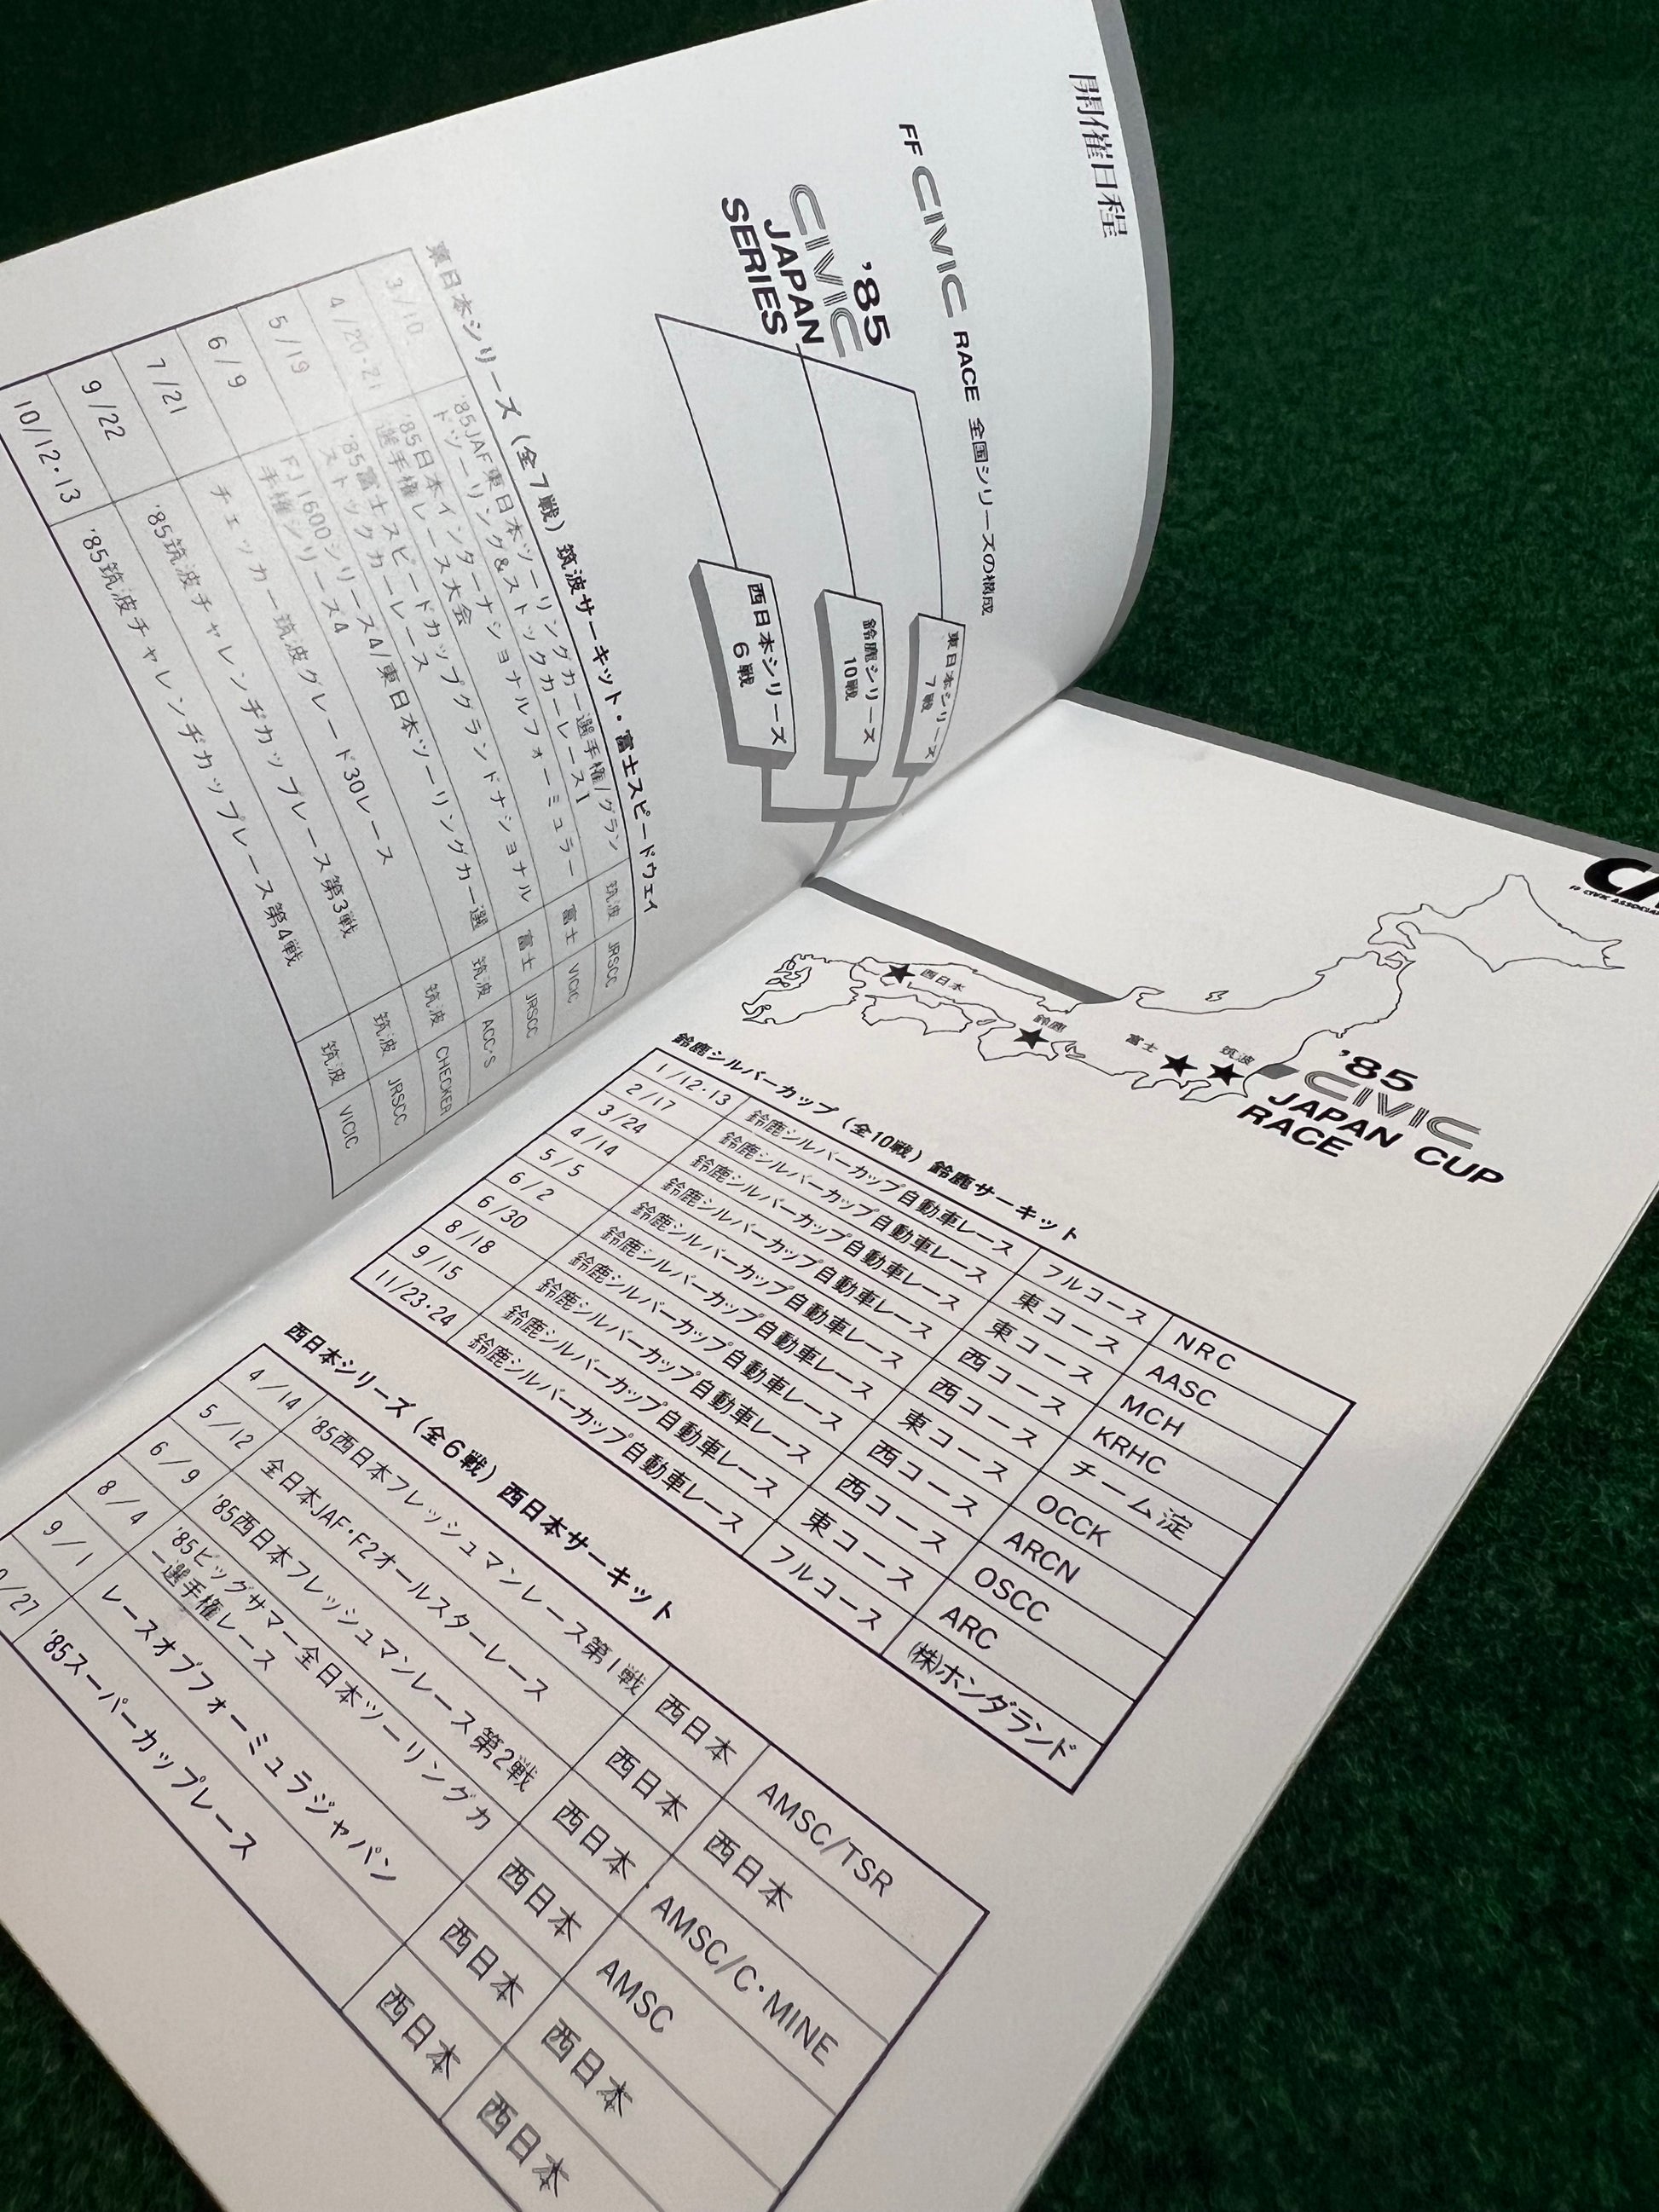 開催日程
FF CIVIC RACE 全国シリーズの構成
'85
CIVIC
JAPAN
SERIES
東日本シリーズ
7戦
鈴鹿シリーズ
10戦
西日本シリーズ
6戦
東日本シリーズ(全7戦)筑波サーキット・富士スピードウェイ
3/10 '85JAF東日本ツーリングカー選手権/グラン
ドツーリング&ストックカーレース1 筑波 JRSCC
4/20・21 '85日本インターナショナルフォーミュラー
選手権レース大会 富士 VICIC
5/19 '85富士スピードカップグランドナショナル
ストックカーレース 富士 JRSCC
6/9 FJ1600シリーズ4/東日本ツーリングカー選
手権シリーズ4 筑波 ACC'S
7/21 チェッカー筑波グレード30レース 筑波 CHECKER
9/22 '85筑波チャレンヂカップレース第3戦 筑波 JRSCC
10/12・13 '85筑波チャレンヂカップレース第4戦 筑波 VICIC
西日本
鈴鹿
富士
筑波
'85
CIVIC
JAPAN CUP
RACE
鈴鹿シルバーカップ(全10戦)鈴鹿サーキット
1/12・13 鈴鹿シルバーカップ自動車レース フルコース NRC
2/17 鈴鹿シルバーカップ自動車レース 東コース AASC
3/24 鈴鹿シルバーカップ自動車レース 東コース MCH
4/14 鈴鹿シルバーカップ自動車レース 西コース KRHC
5/5 鈴鹿シルバーカップ自動車レース 西コース チーム淀
6/2 鈴鹿シルバーカップ自動車レース 東コース OCCK
6/30 鈴鹿シルバーカップ自動車レース 西コース ARCN
8/18 鈴鹿シルバーカップ自動車レース 西コース OSCC
9/15 鈴鹿シルバーカップ自動車レース 東コース ARC
11/23・24 鈴鹿シルバーカップ自動車レース フルコース ㈱ホンダランド
西日本シリーズ(全6戦)西日本サーキット
4/14 '85西日本フレッシュマンレース第1戦 西日本 AMSC/TSR
5/12 全日本JAF・F2オールスターレース 西日本 西日本
6/9 '85西日本フレッシュマンレース第2戦 西日本 AMSC/C・MINE
8/4 '85ビッグサマー全日本ツーリングカ
ー選手権レース 西日本 AMSC
9/1 レースオブフォーミュラジャパン 西日本 西日本
/27 '85スーパーカップレース 西日本 西日本